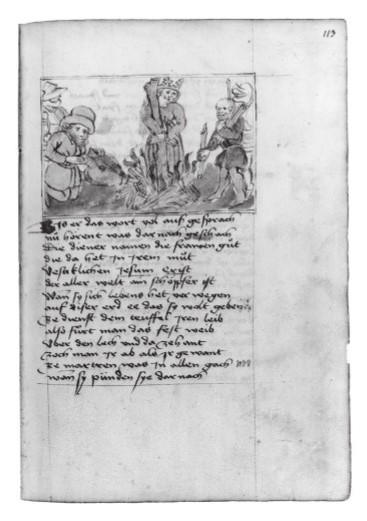 113
Do er das wort vol auß gesprach
nu hörent was dar nach geschach
Die diener namen die frawen gůt
die da het in irem můt
vestiklichen Jesum Crist
der aller welt ain schöpfer ist
Wan sy sich lebens het ver wegen
auf diser erd ee das sy wolt geben
ze dienst dem teuffel iren leib
also fůrt man das fest weib
vber den lech vnd da zehant
zoch man ir ab als ir gewant
ze martren was in allen gach
wan sy punden sye dar nach